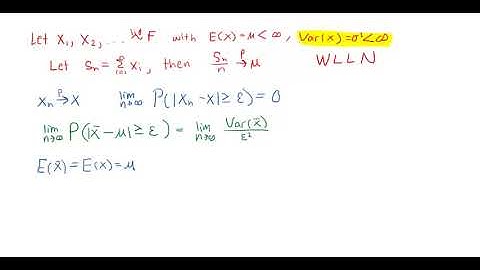 Let X₁, X₂, ... iid F with E(X)=μ<∞, Var(X)=σ²<∞
Let Sₙ = Σᵢ₌₁ⁿ Xᵢ, then Sₙ/n →ᵖ μ WLLN
Xₙ →ᵖ X lim n→∞ P(|Xₙ-X|≥ε)=0
lim n→∞ P(|X̄-μ|≥ε) = lim n→∞ Var(X̄)/ε²
E(X̄)=E(X)=μ